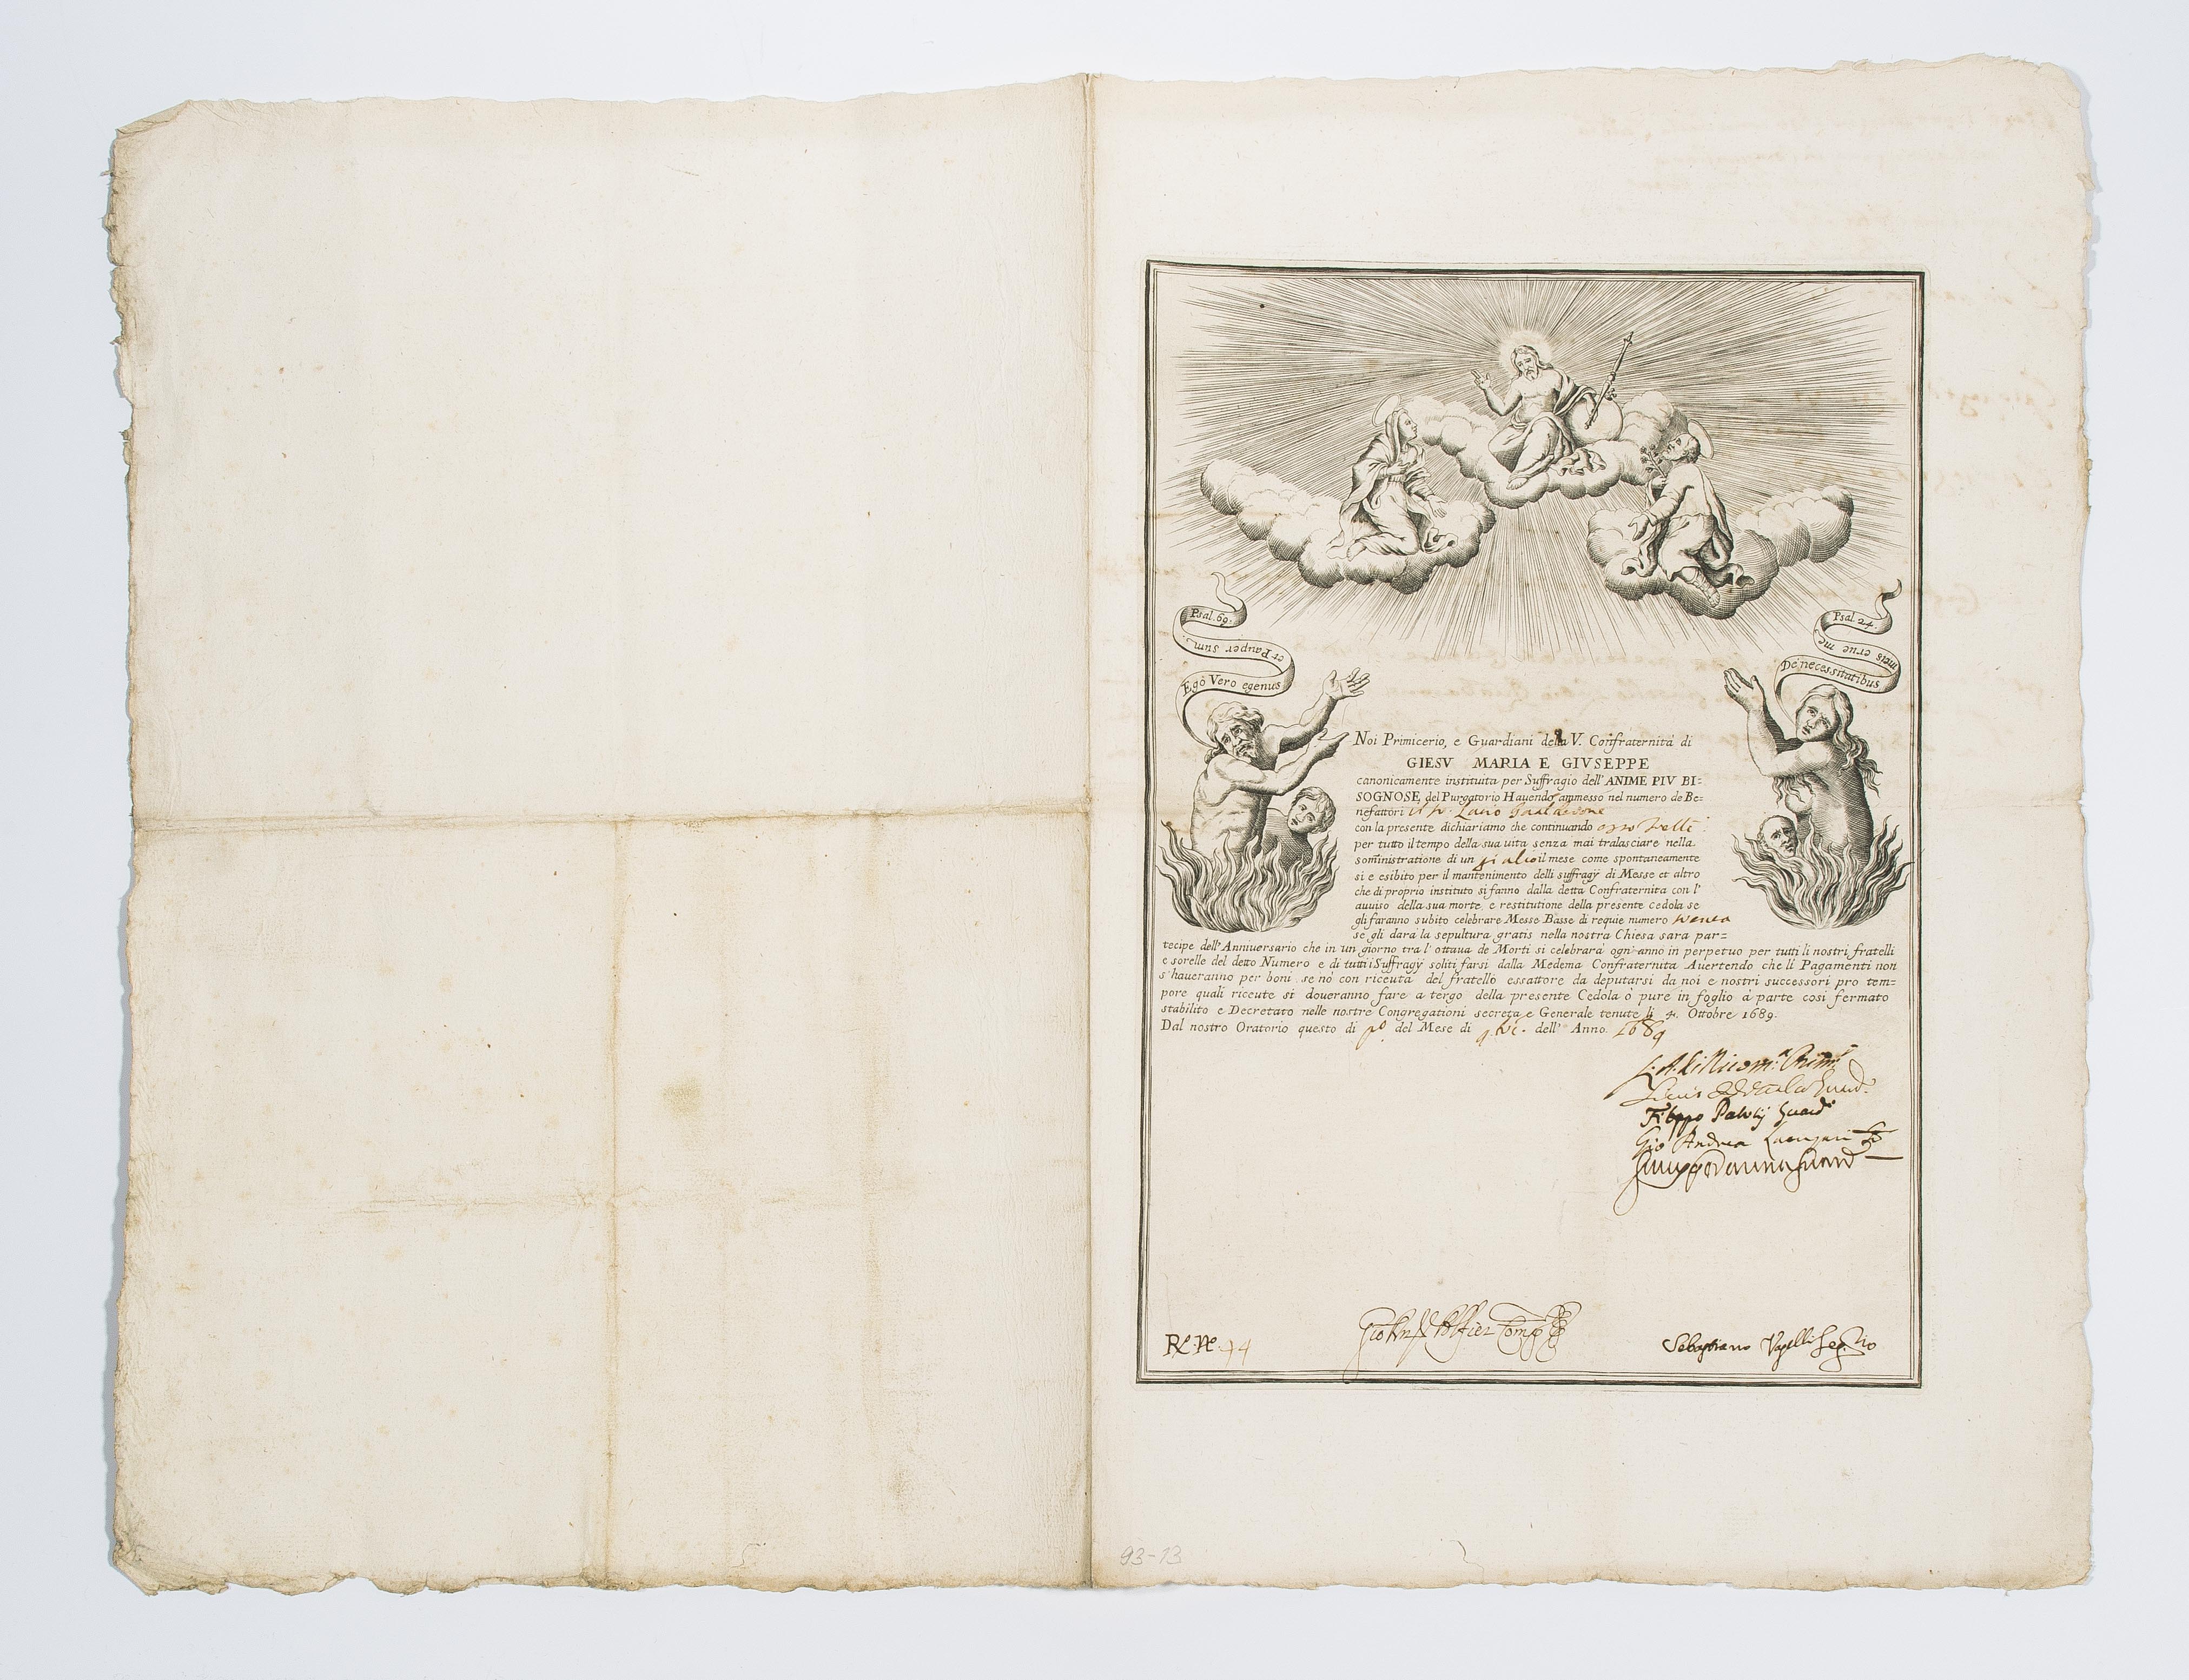 Psal. 69.
et Pauper sum
Egò Vero egenus
Psal. 24.
meis erue me
De necessitatibus
Noi Primicerio, e Guardiani della V. Confraternità di
GIESV MARIA E GIVSEPPE
canonicamente instituita per Suffragio dell' ANIME PIV BI=
SOGNOSE del Purgatorio Hauendo ammesso nel numero de Be=
nefattori
con la presente dichiariamo che continuando
per tutto il tempo della sua uita senza mai tralasciare nella
sominìstratione di un giulio il mese come spontaneamente
si e esibito per il mantenimento delli suffragÿ di Messe et altro
che di proprio instituto si fanno dalla detta Confraternita con l'
auuiso della sua morte e restitutione della presente cedola se
gli faranno subito celebrare Messe Basse di requie numero
se gli darà la sepultura gratis nella nostra Chiesa sara par=
tecipe dell' Anniuersario che in un giorno tra l' ottaua de Morti si celebrarà ogn' anno in perpetuo per tutti li nostri fratelli
e sorelle del detto Numero e di tutti i Suffragÿ soliti farsi dalla Medema Confraternita Auertendo che li Pagamenti non
s' haueranno per boni se nò con riceuta del fratello essattore da deputarsi da noi e nostri successori pro tem=
pore quali riceute si doueranno fare a tergo della presente Cedola ò pure in foglio à parte cosi fermato
stabilito e Decretato nelle nostre Congregationi secreta e Generale tenute li 4. Ottobre 1689.
Dal nostro Oratorio questo di pº del Mese di 9.bre. dell' Anno. 1689
Filippo Guardº
Gio Andrea
Sebastiano
93-13